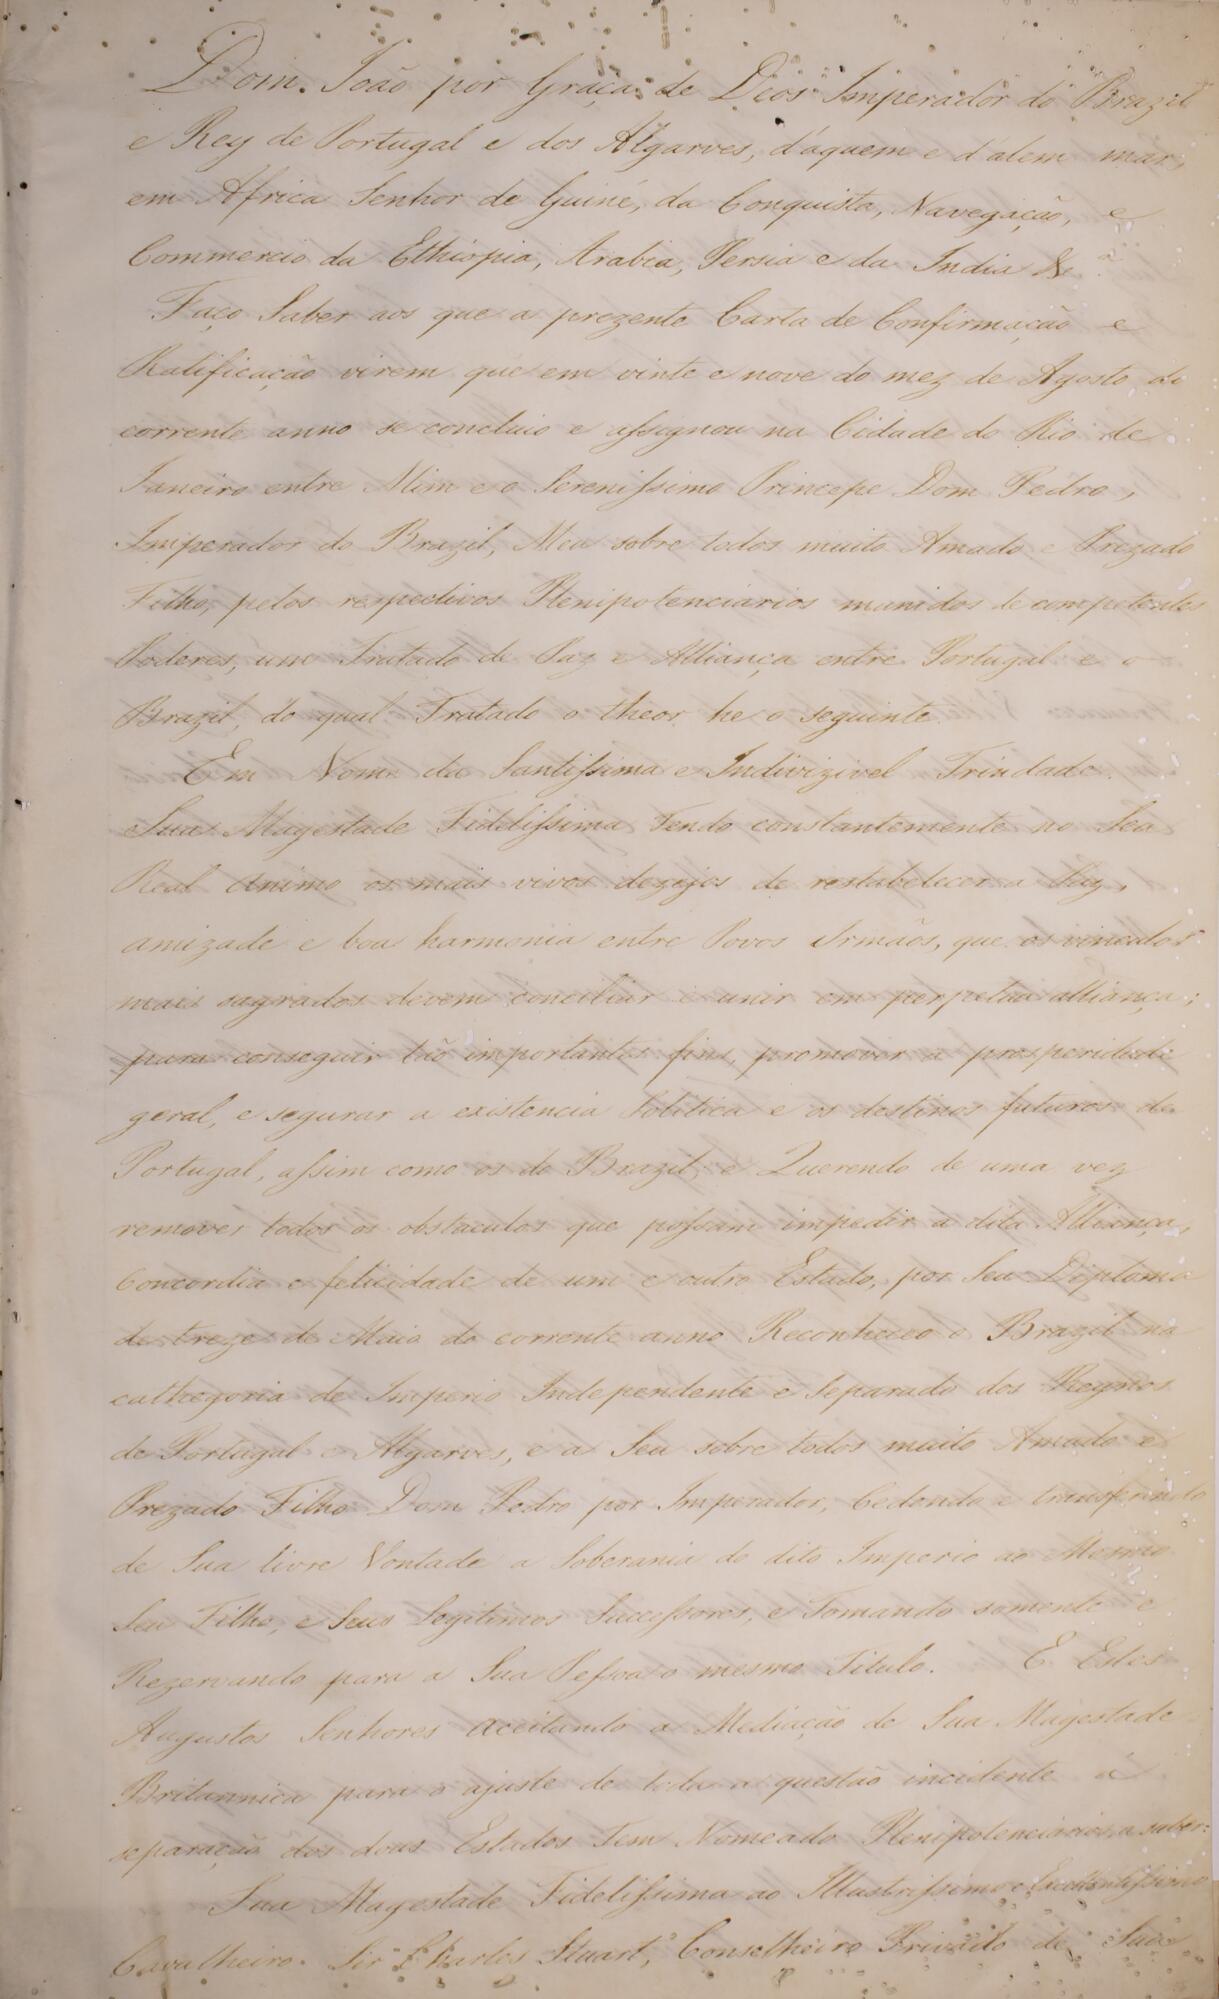 Dom João por Graça de Deos Imperador do Brazil
e Rey de Portugal e dos Algarves, d'áquem e d'alem mar,
em Africa Senhor de Guiné, da Conquista, Navegação, e
Commercio da Ethiopia, Arabia, Persia e da India &ª
Faço Saber aos que a prezente Carta de Confirmação e
Ratificação virem que em vinte e nove do mez de Agosto do
corrente anno se concluio e assignou na Cidade do Rio de
Janeiro entre Mim e o Serenissimo Principe Dom Pedro,
Imperador do Brazil, Meu sobre todos muito Amado e Prezado
Filho, pelos respectivos Plenipotenciarios munidos de competentes
Poderes, um Tratado de Paz e Alliança entre Portugal e o
Brazil, do qual Tratado o theor he o seguinte
Em Nome da Santissima e Indivizivel Trindade.
Sua Magestade Fidelissima Tendo constantemente no Seu
Real animo os mais vivos dezejos de restabelecer a Paz,
amizade e boa harmonia entre Povos Irmãos, que os vinculos
mais sagrados devem conciliar e unir em perpetua alliança;
para conseguir tão importantes fins, promover a prosperidade
geral, e segurar a existencia Politica e os destinos futuros de
Portugal, assim como os do Brazil; e Querendo de uma vez
remover todos os obstaculos que possam impedir a dita Alliança,
Concordia e felicidade de um e outro Estado, por Seu Diploma
de treze de Maio do corrente anno Reconheceo o Brazil na
cathegoria de Imperio Independente e Separado dos Reynos
de Portugal e Algarves, e a Seu sobre todos muito Amado e
Prezado Filho Dom Pedro por Imperador, Cedendo e transferindo
de Sua livre Vontade a Soberania do dito Imperio ao Mesmo
Seu Filho, e Seus Legitimos Successores, e Tomando somente e
Rezervando para a Sua Pessoa o mesmo Titulo. E Estes
Augustos Senhores aceitando a Mediação de Sua Magestade
Britannica para o ajuste de toda a questão incidente á
separação dos dous Estados Tem Nomeado Plenipotenciarios, a saber:
Sua Magestade Fidelissima ao Illustrissimo e Excellentissimo
Cavalheiro Sir Charles Stuart, Conselheiro Privado de Sua